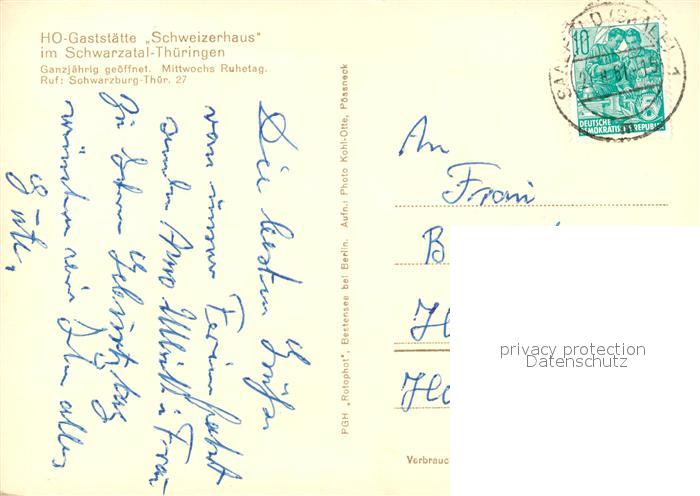 HO-Gaststätte „Schweizerhaus"
im Schwarzatal-Thüringen
Ganzjährig geöffnet. Mittwochs Ruhetag.
Ruf: Schwarzburg-Thür. 27
Die besten Grüße
von unserer Ferienfahrt
senden Arno Ullrich u. Frau
Zu Ihrem Geburtstag
wünschen wir Ihnen alles
Gute.
PGH „Rotophot", Bestensee bei Berlin. Aufn.: Photo Kohl-Otte, Pössneck
SAALFELD (SAALE) 1
10
DEUTSCHE
DEMOKRATISCHE REPUBLIK
An
Frau
B
H
Ha
privacy protection
Datenschutz
Verbrauc